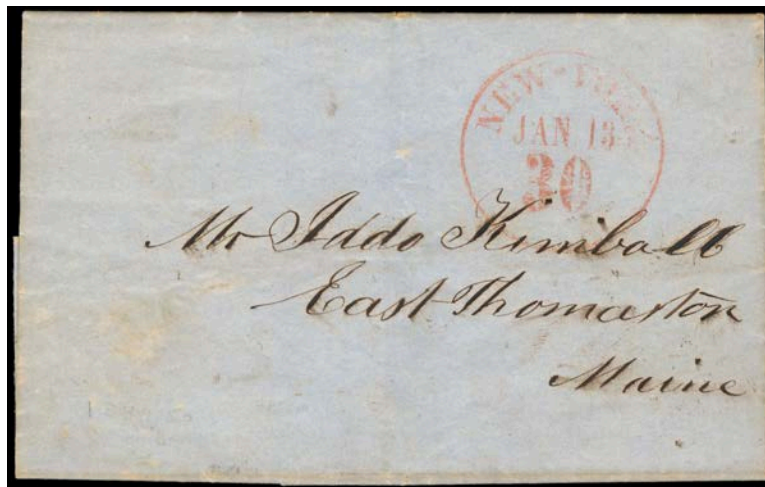 NEW-YORK
JAN 13
30
Mr Iddo Kimball
East Thomaston
Maine